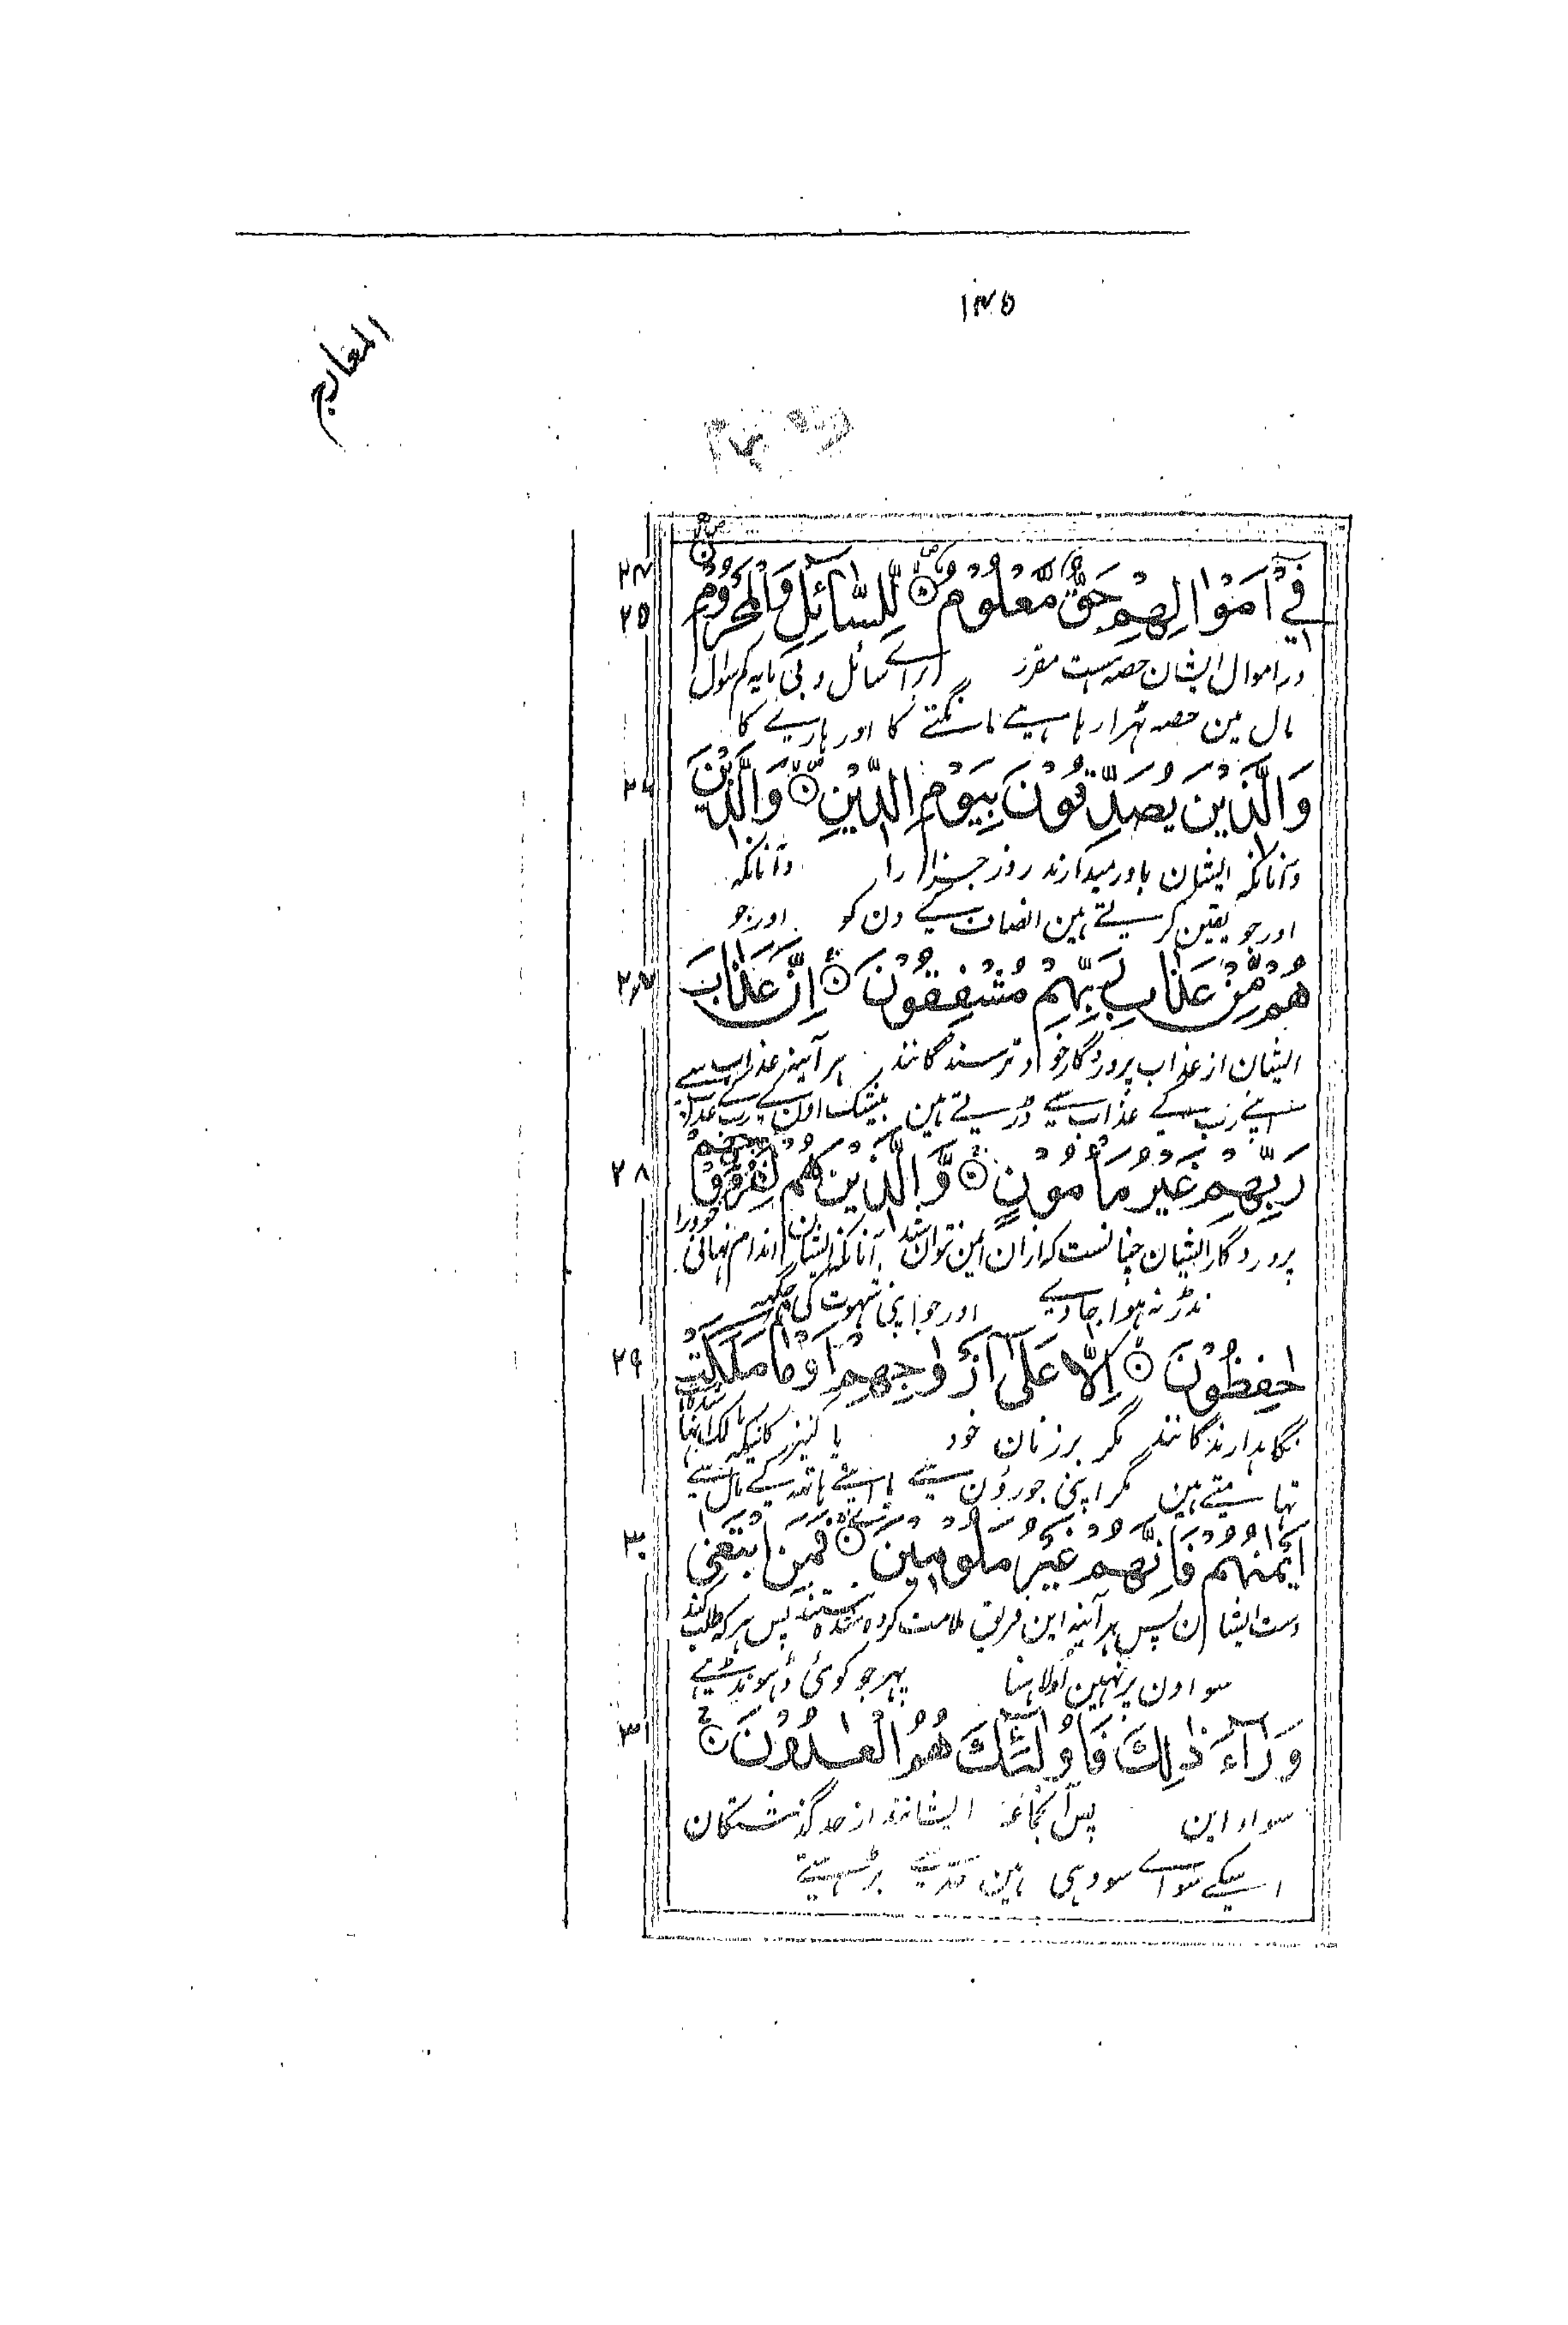 ۱۳۵
المعارج
۲۴
فِيْٓ اَمْوَالِهِمْ حَقٌّ مَّعْلُوْمٌ لِّلسَّآئِلِ وَالْمَحْرُوْمِ
۲۵
در اموال ایشان حصه هست مقرر براے سائل و بی مایه کم سوال
مال مین حصه ٹهرا رہا ہے مانگتے کا اور ہارے کا
وَالَّذِيْنَ يُصَدِّقُوْنَ بِيَوْمِ الدِّيْنِ وَالَّذِيْنَ
۲۶
وآنانکه ایشان باور میدارند روز جزا را وآنانکه
اور جو یقین کرتے ہین انصاف کے دن کو اور جو
هُمْ مِّنْ عَذَابِ رَبِّهِمْ مُّشْفِقُوْنَ اِنَّ عَذَابَ
۲۷
ایشان از عذاب پروردگار خود ترسندگانند ہر آئینه عذاب
اپنے رب کے عذاب سے ڈرتے ہین بیشک اون کے رب کے عذاب سے
رَبِّهِمْ غَيْرُ مَاْمُوْنٍ وَّالَّذِيْنَ هُمْ لِفُرُوْجِهِمْ
۲۸
پروردگار ایشان چنانست که ازان ایمن نتوان شد آنانکه ایشان اندام نهانی خود را
نڈر نه ہوا جاوے اور جو اپنی شهوت کی جگہ
حٰفِظُوْنَ اِلَّا عَلٰٓى اَزْوَاجِهِمْ اَوْ مَا مَلَكَتْ
۲۹
نگاہدارندگانند مگر بر زنان خود یا کنیزکانیکه مالک آنها شده
تهامتے ہین مگر اپنی جوروٗن سے یا اپنے ہاتهه کے مال سے
اَيْمٰنُهُمْ فَاِنَّهُمْ غَيْرُ مَلُوْمِيْنَ فَمَنِ ابْتَغٰى
۳۰
دست ایشان پس ہر آئینه این فریق ملامت کرده شده نیستند پس ہر که طلب کند
سو اون پر نهین اولاہنا پہر جو کوئی ڈہونڈہے
وَرَآءَ ذٰلِكَ فَاُولٰٓئِكَ هُمُ الْعٰدُوْنَ
۳۱
سواد این پس آنجماعه ایشانند از حد گذشتگان
اسکے سواے سو وہی ہین حد سے بڑہتے